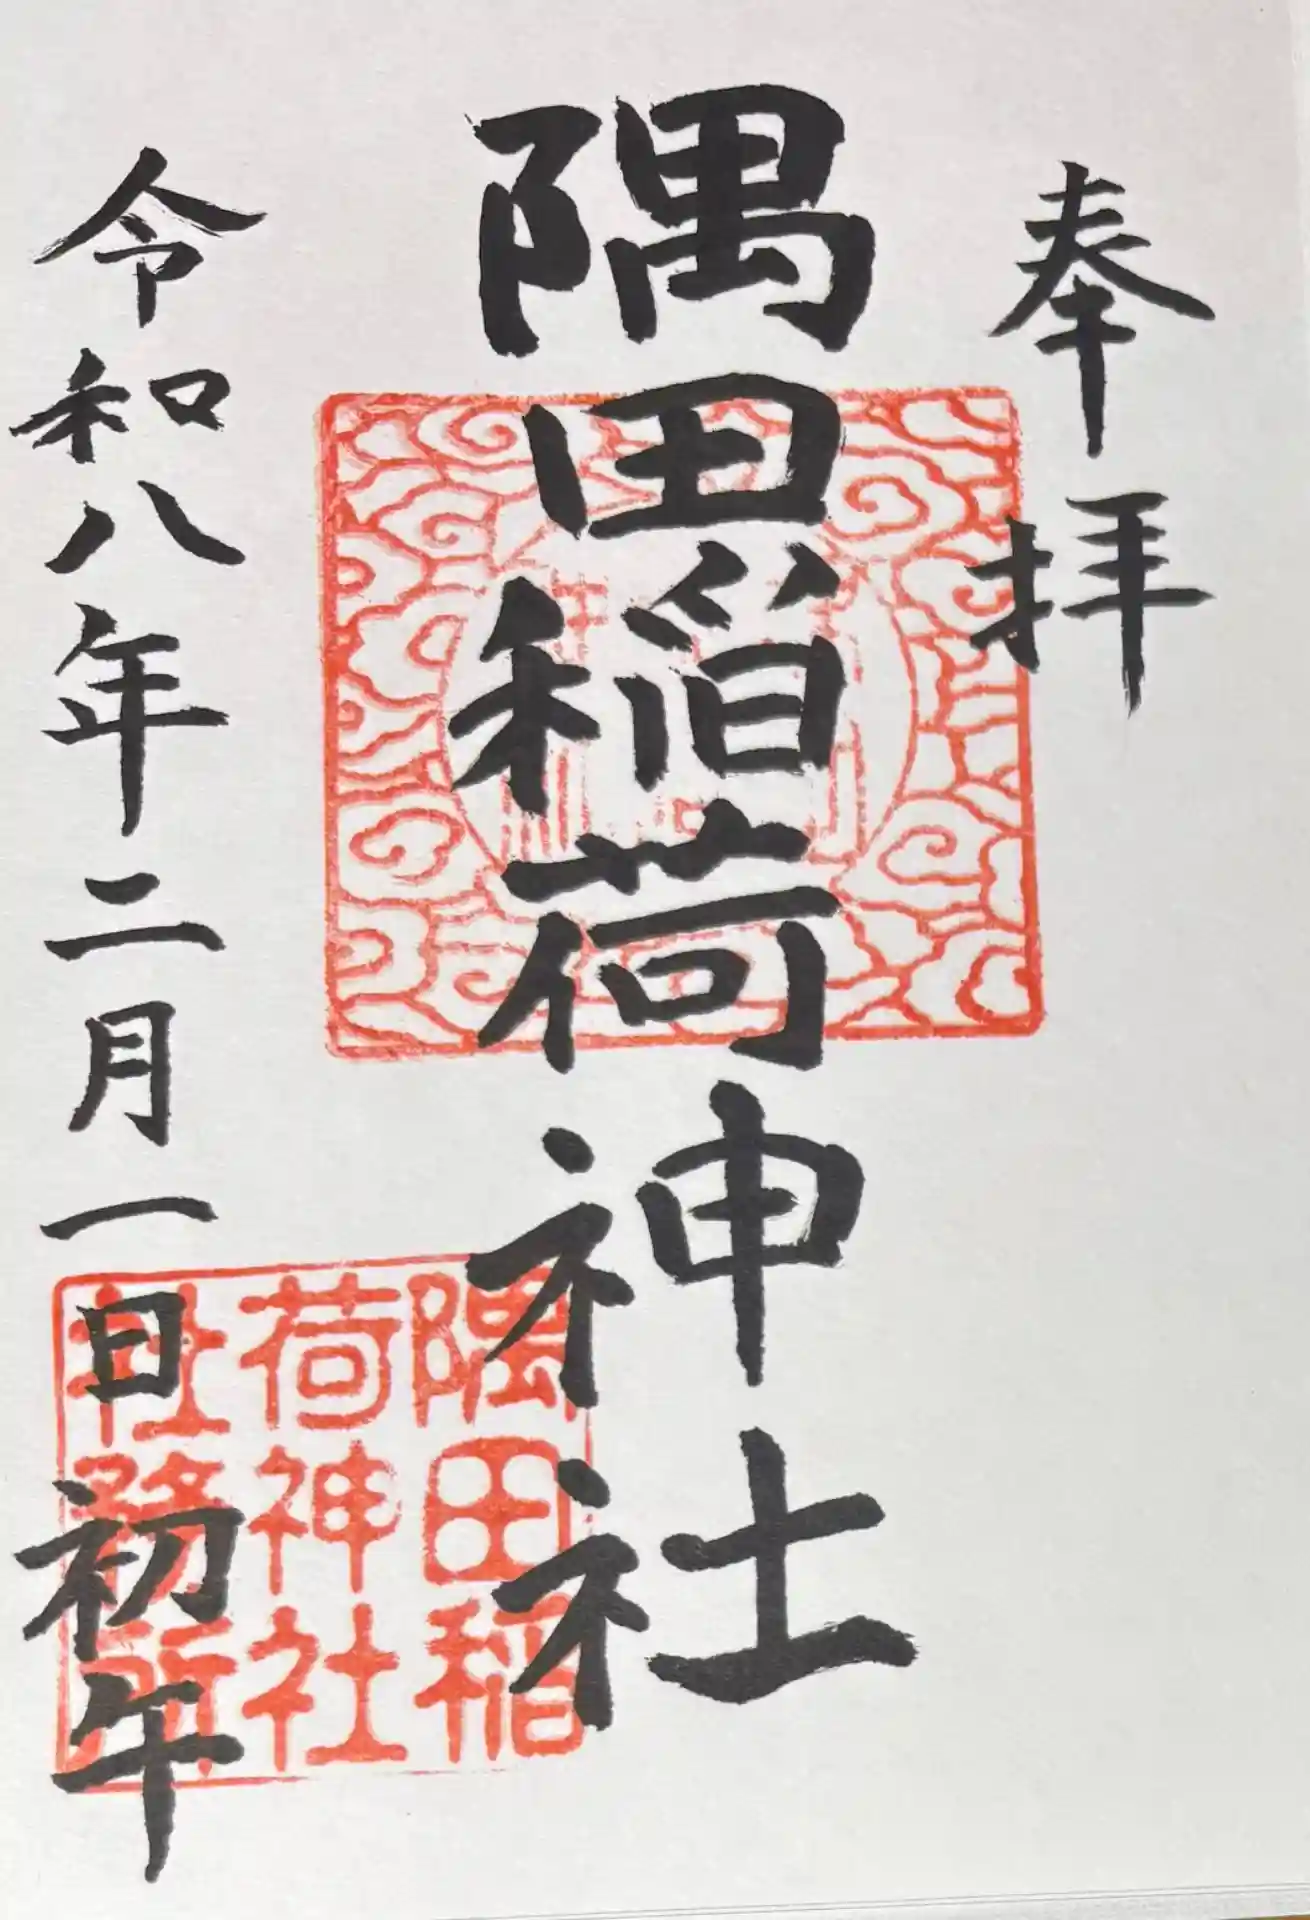 奉拝
隅田稲荷神社
令和八年二月一日初午
隅田稲
荷神社
社務所